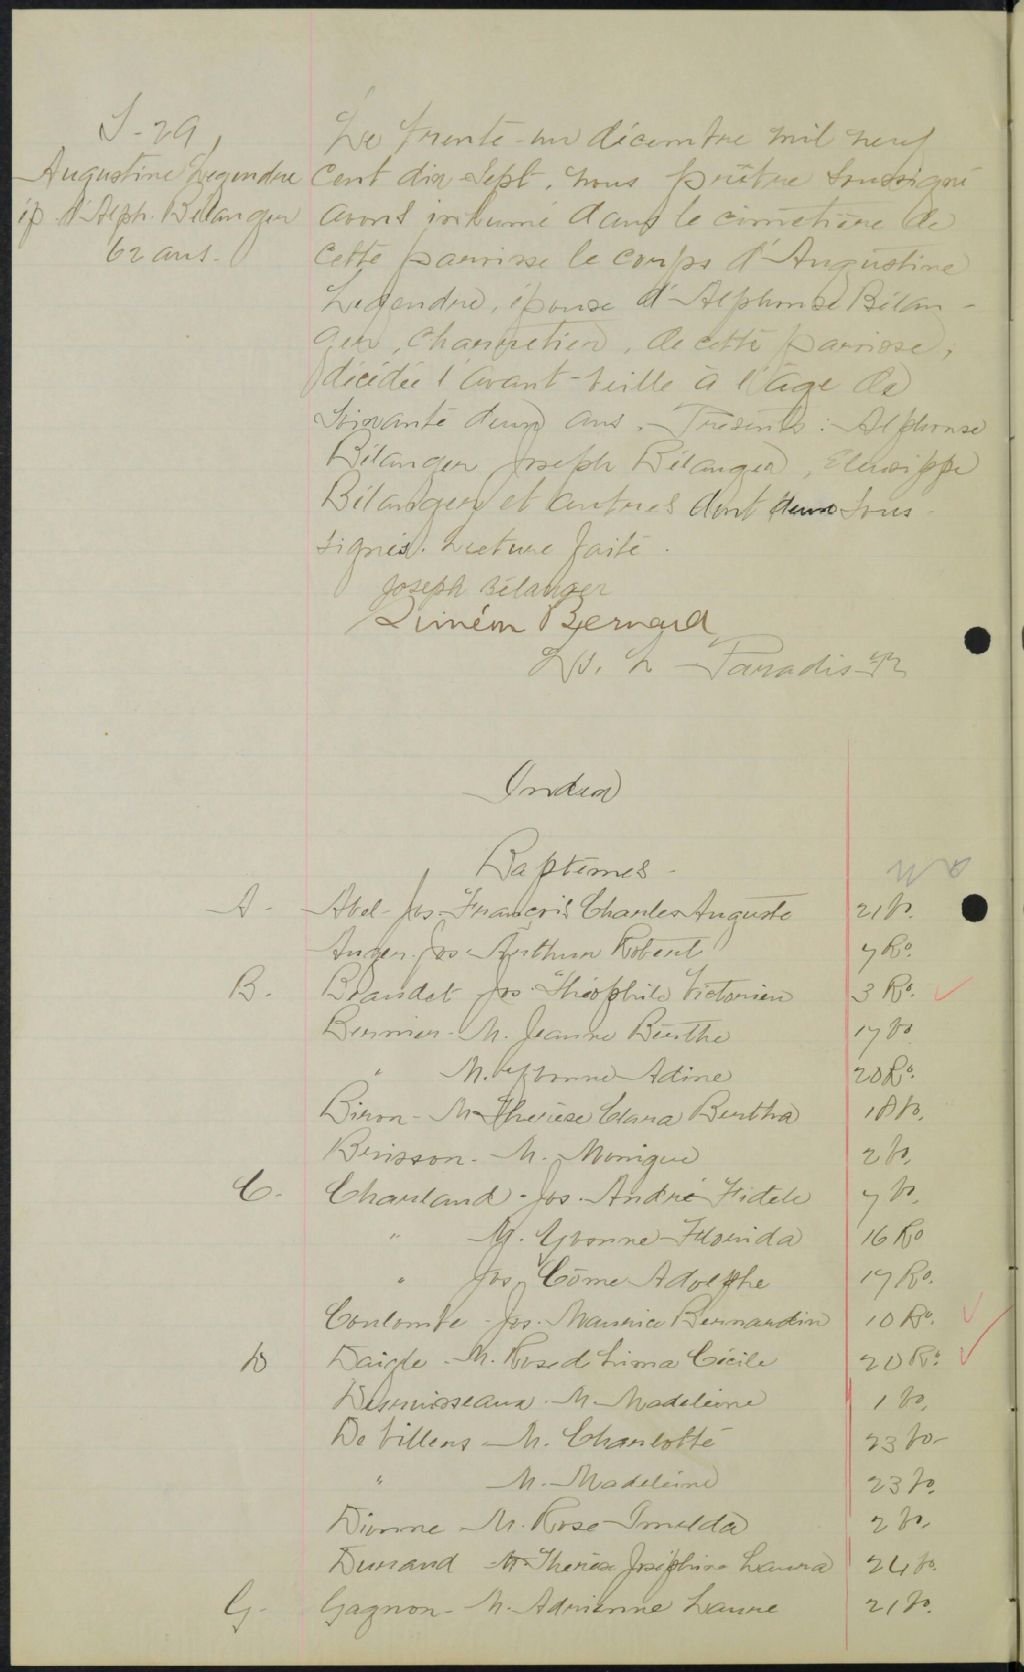 S-29
Augustine Legendre
ép. d'Alph. Bélanger
62 ans.
Le trente-un décembre mil neuf
cent dix sept, nous prêtre soussigné
avons inhumé dans le cimetière de
cette paroisse le corps d'Augustine
Legendre, épouse d'Alphonse Bélan-
ger, charretier, de cette paroisse,
décédée l'avant-veille à l'âge de
soixante deux ans. Présents: Alphonse
Bélanger Joseph Bélanger, Eleusippe
Bélanger et autres dont deux sous-
signés. Lecture faite.
Joseph Bélanger
Siméon Bernard
Ls. L. Paradis
Index
Baptêmes-
A- Abel- Jos-François Charles Auguste 21 Vo.
Auger. Jos-Arthur Robert 7 Ro.
B. Beaudet Jos. Théophile Victorien 3 Ro.
Bernier- M. Jeanne Berthe 17 Vo
" M. Yvonne Adine 20 Ro.
Biron- M-Thérèse Clara Bertha 18 Vo.
Brisson- M. Monique 2 Vo.
C. Charland- Jos. André Fidele 7 Vo.
" M. Yvonne Florida 16 Ro
" Jos. Côme Adolphe 17 Ro.
Coulombe- Jos. Maurice Bernardin 10 Ro.
D Daigle- M. Rose de Lima Cécile 20 Ro.
Desruisseaux- M-Madeleine 1 Vo.
De Villers- M. Charlotte 23 Vo-
" M-Madeleine 23 Vo.
Dionne- M. Rose-Imelda 2 Vo.
Durand M-Thérèse Joséphine Laura 24 Vo.
G. Gagnon- M. Adrienne Laure 21 Vo.